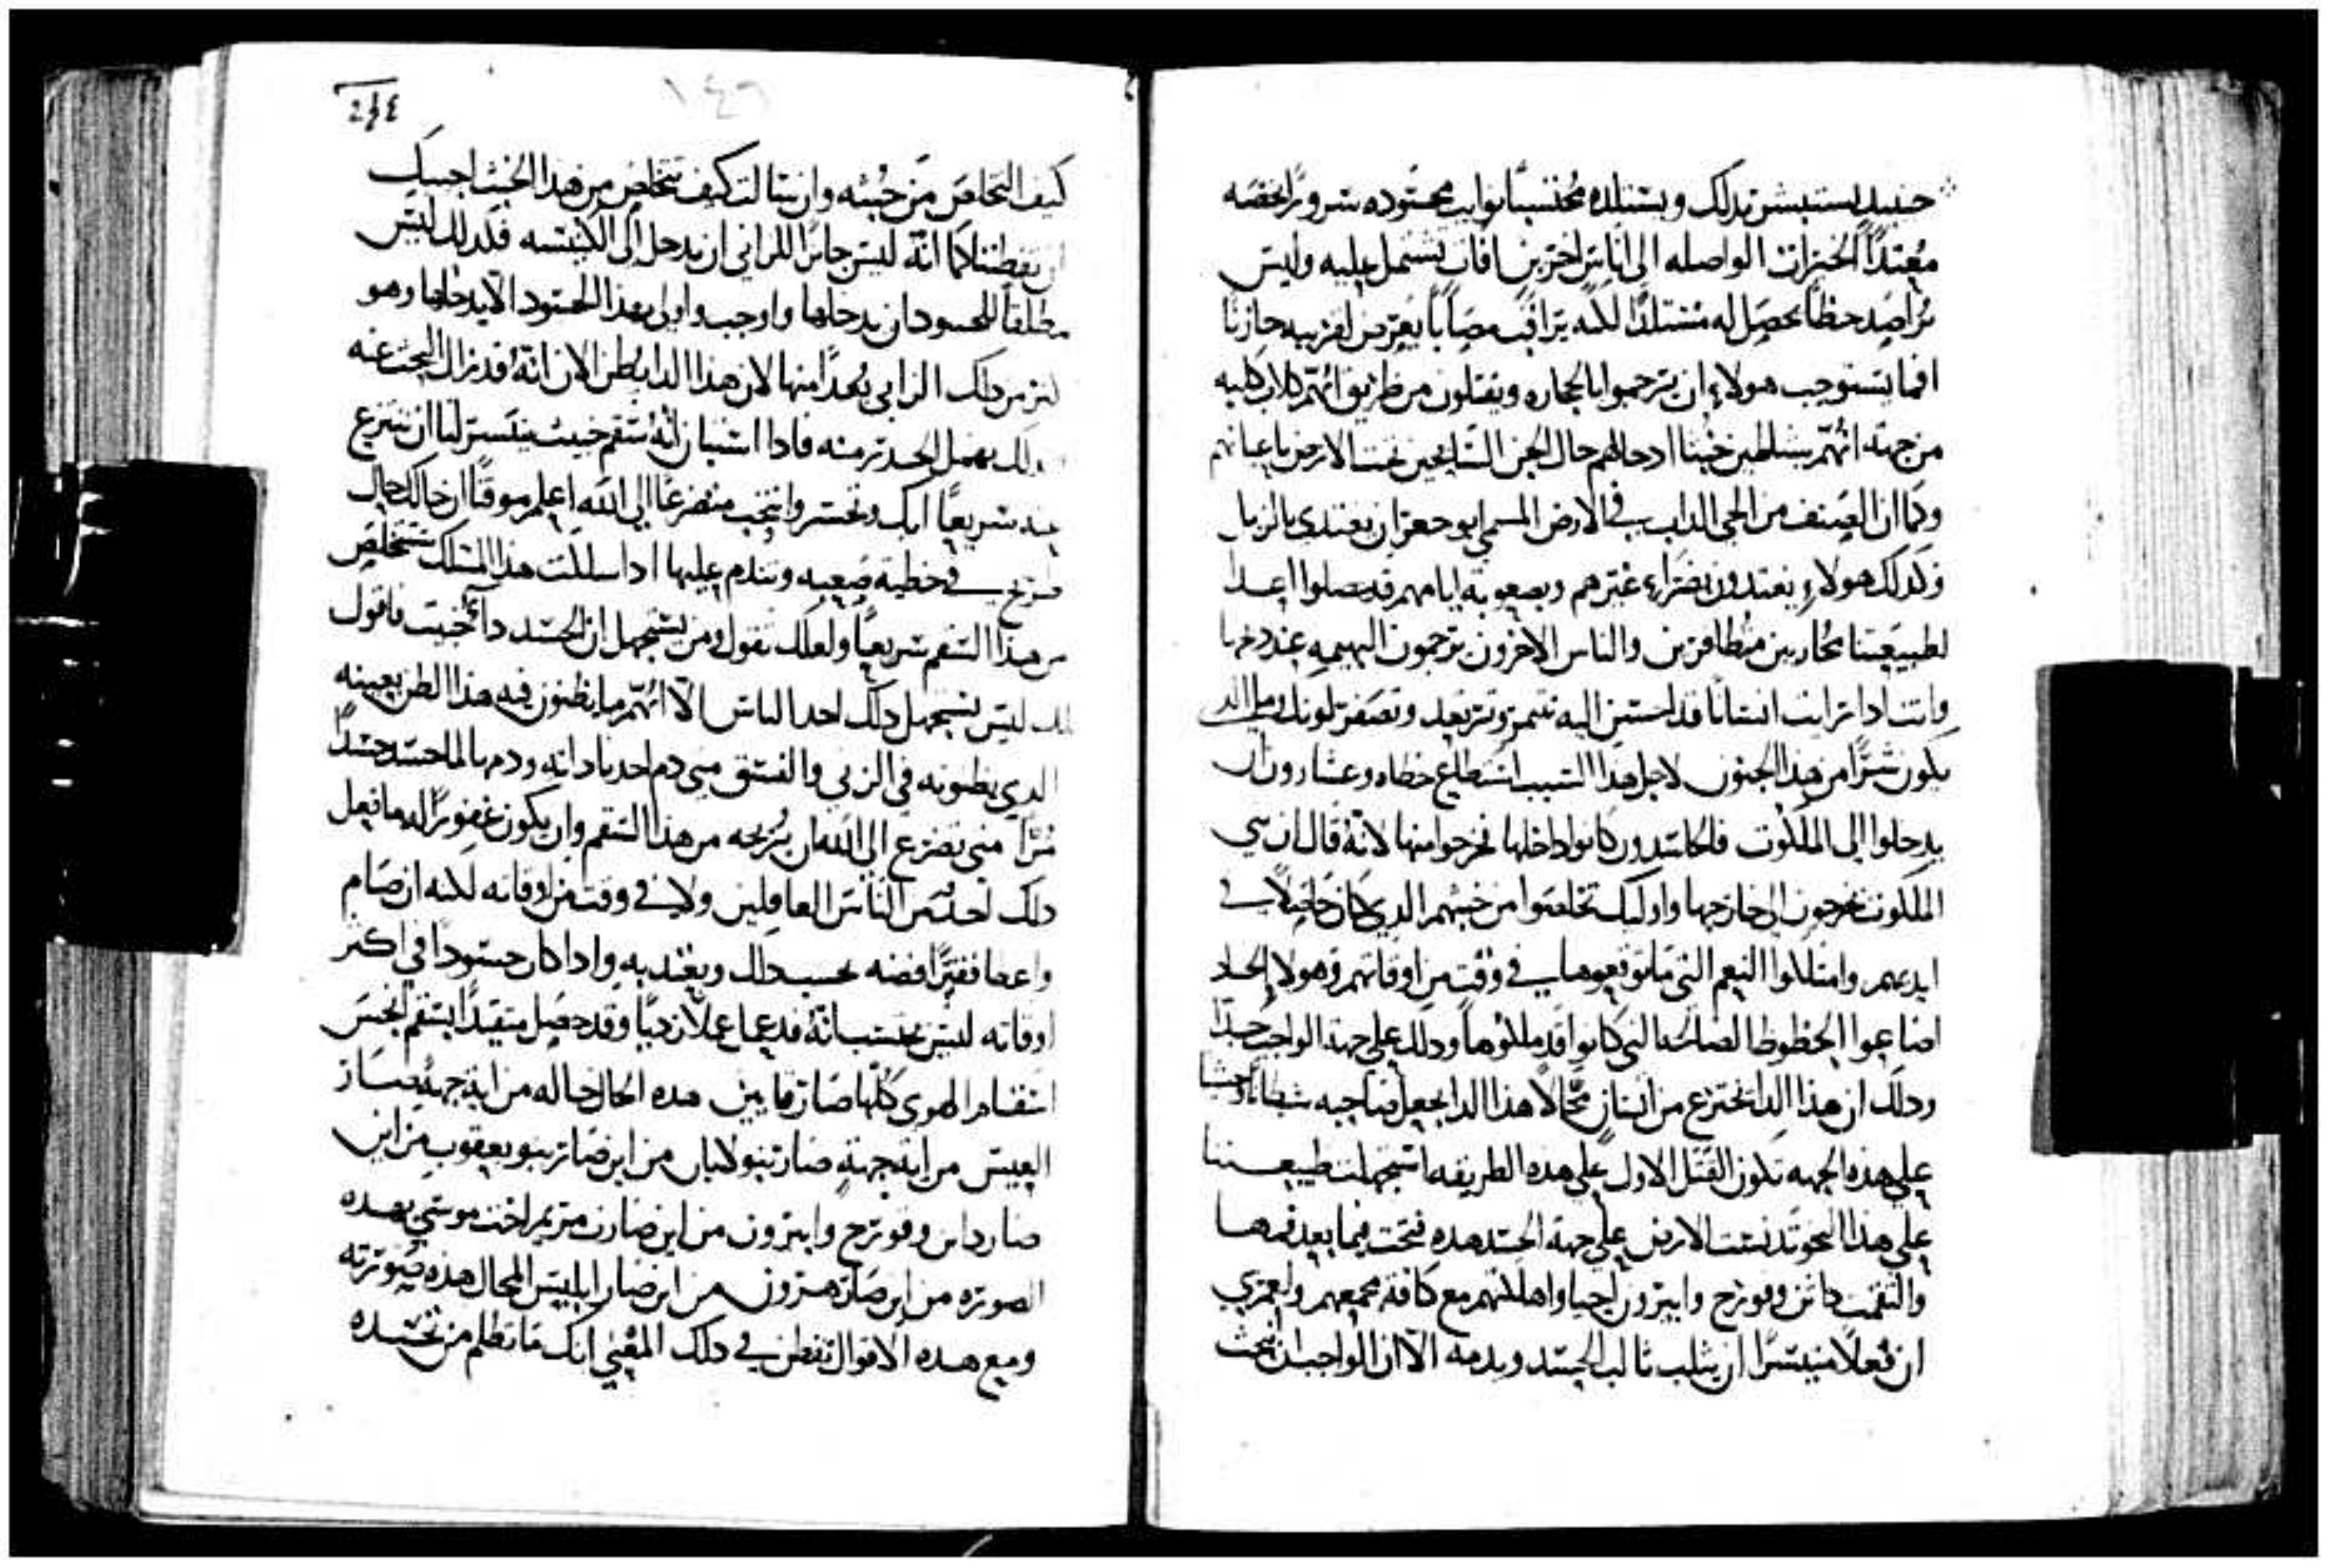 حينيد يستبشر بدلك ويستلده محتسبًا نوايب محسوده سرورًا يخصه
معتدًا الخيرات الواصله الى اناس اخرين افات يشتمل عليه وليس
يراصد حظًا يحصل له مستلدًا لكنه يراقب مصابًا يعرض لقريبه حازنًا
افما يستوجب هولاء ان يرجموا بالحجاره ويقتلون من طريق انهم كلاب كلبه
من جهة انهم شياطين خبثا ادحالهم حال الجن السايحين تحت الارض باعيانهم
وكما ان الصنف من الحي الداب في الارض المسمى ابو جعران يغتدى بالزبل
فكدلك هولاء يغتدون بضراء غيرهم وبصعوبة ايامهم قد حصلوا اعدا
لطبيعتنا محاربين متظافرين والناس الاخرون يرحمون البهيمه عند دبحها
وانت ادا رايت انسانًا قد احسن اليه تتنمر وترتعد وتصفر لونك وما الدي
يكون شرًا من هدا الجنون لاجل هدا السبب استطاع خطاه وعشارون ان
يدخلوا الى الملكوت فالحاسدون كانوا داخلها فخرجوا منها لانه قال ان بني
الملكوت يخرجون الى خارجها واوليك تخلصوا من خبثهم الدي كان حاصلاً في
ايديهم وامتلكوا النعم التي ما توقعوها في وقت من اوقاتهم وهولا الحساد
اضاعوا الحظوظ الصالحه التي كانوا قد ملكوها ودلك على جهة الواجب جدًا
ودلك ان هدا الدا يخترع من انسان محالاً هدا الدا يجعل صاحبه شيطانًا وحشيا
على هده الجهه تكون القتل الاول على هده الطريقه استجهلت طبيعتنا
على هدا النحو تدنست الارض على جهة الحسد هده فتحت فيما بعد فمها
والتقمت داثن وقورح وابيرون احيا واهلكتهم مع كافة جمعهم ولعمري
ان فعلاً متيسرًا ان يثلب ثالب الحسد ويدمه الا ان الواجب ان نبحث
٢٤٤
١٤٦
كيف التخلص من خبثه وان سالت كيف نتخلص من هدا الخبث اجبتك
ان تفطننا كما انه ليس جايزًا للزاني ان يدخل الى الكنيسه فكدلك ليس
مطلقًا للحسود ان يدخلها واوجب واولى بهدا الحسود الا يدخلها وهو
اكثر من دلك الزاني بُعدًا منها لان هدا الدا يظن الان انه قد زال البحث عنه
ودلك بهمل الحدر منه فادا استبان انه سقم خبيث يتيسر لنا ان ننتزع
عنه سريعًا ابك وتحسر وانتحب متضرعًا الى الله اعلم موقنًا ان حالك حال
في خطية صعبه وتندم عليها ادا سلكت هدا المسلك ستتخلص
من هدا السقم سريعًا ولعلك تقول ومن يستجهل ان الحسد داءً خبيث فاقول
لك ليس يستجهل دلك احد الناس الا انهم ما يظنون فيه هدا الظن بعينه
الدي يظنونه في الزنى والفسق متى دم احد ما داته ودمها لما حسد حسدًا
مُرًا متى تضرع الى الله ان يُريحه من هدا السقم وان يكون غفورًا له ما فعل
دلك احد من الناس العاقلين ولا في وقت من اوقاته لكنه ان صام
واعطا فقيرًا فضه يحسب دلك ويعتد به وادا كان حسودًا في اكثر
اوقاته ليس يحتسب انه قد عمل عملاً رديًا وقد حصل متقيدًا بسقم اخس
اسقام الهوى كلها صار قايين هده الحال حاله من اية جهة صار
العيس من اية جهة صار بنو لابان من اين صار بنو يعقوب من اين
صار داثن وقورح وابيرون من اين صارت مريم اخت موسى بهده
الصوره من اين صار هرون من اين صار ابليس المحال هده صورته
ومع هده الاقوال تفطن في دلك المعنى انك ما تظلم من تحسده